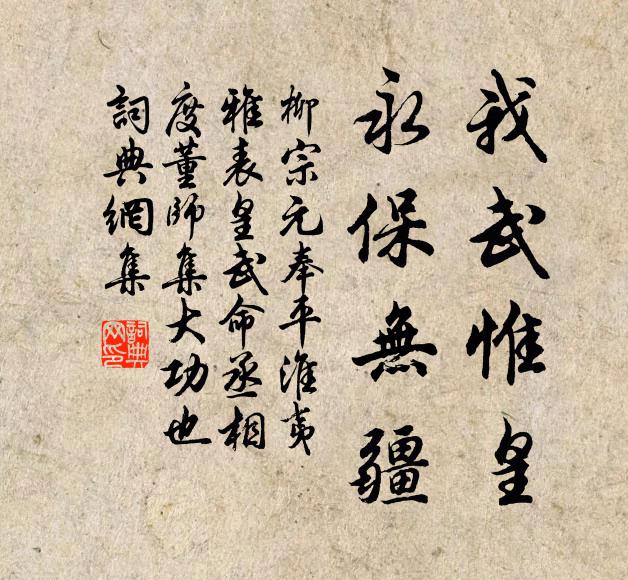 我武惟皇
永保無疆
柳宗元奉平淮夷
雅表皇武命丞相
度董師集大功也
詞典網集
詞典
网印